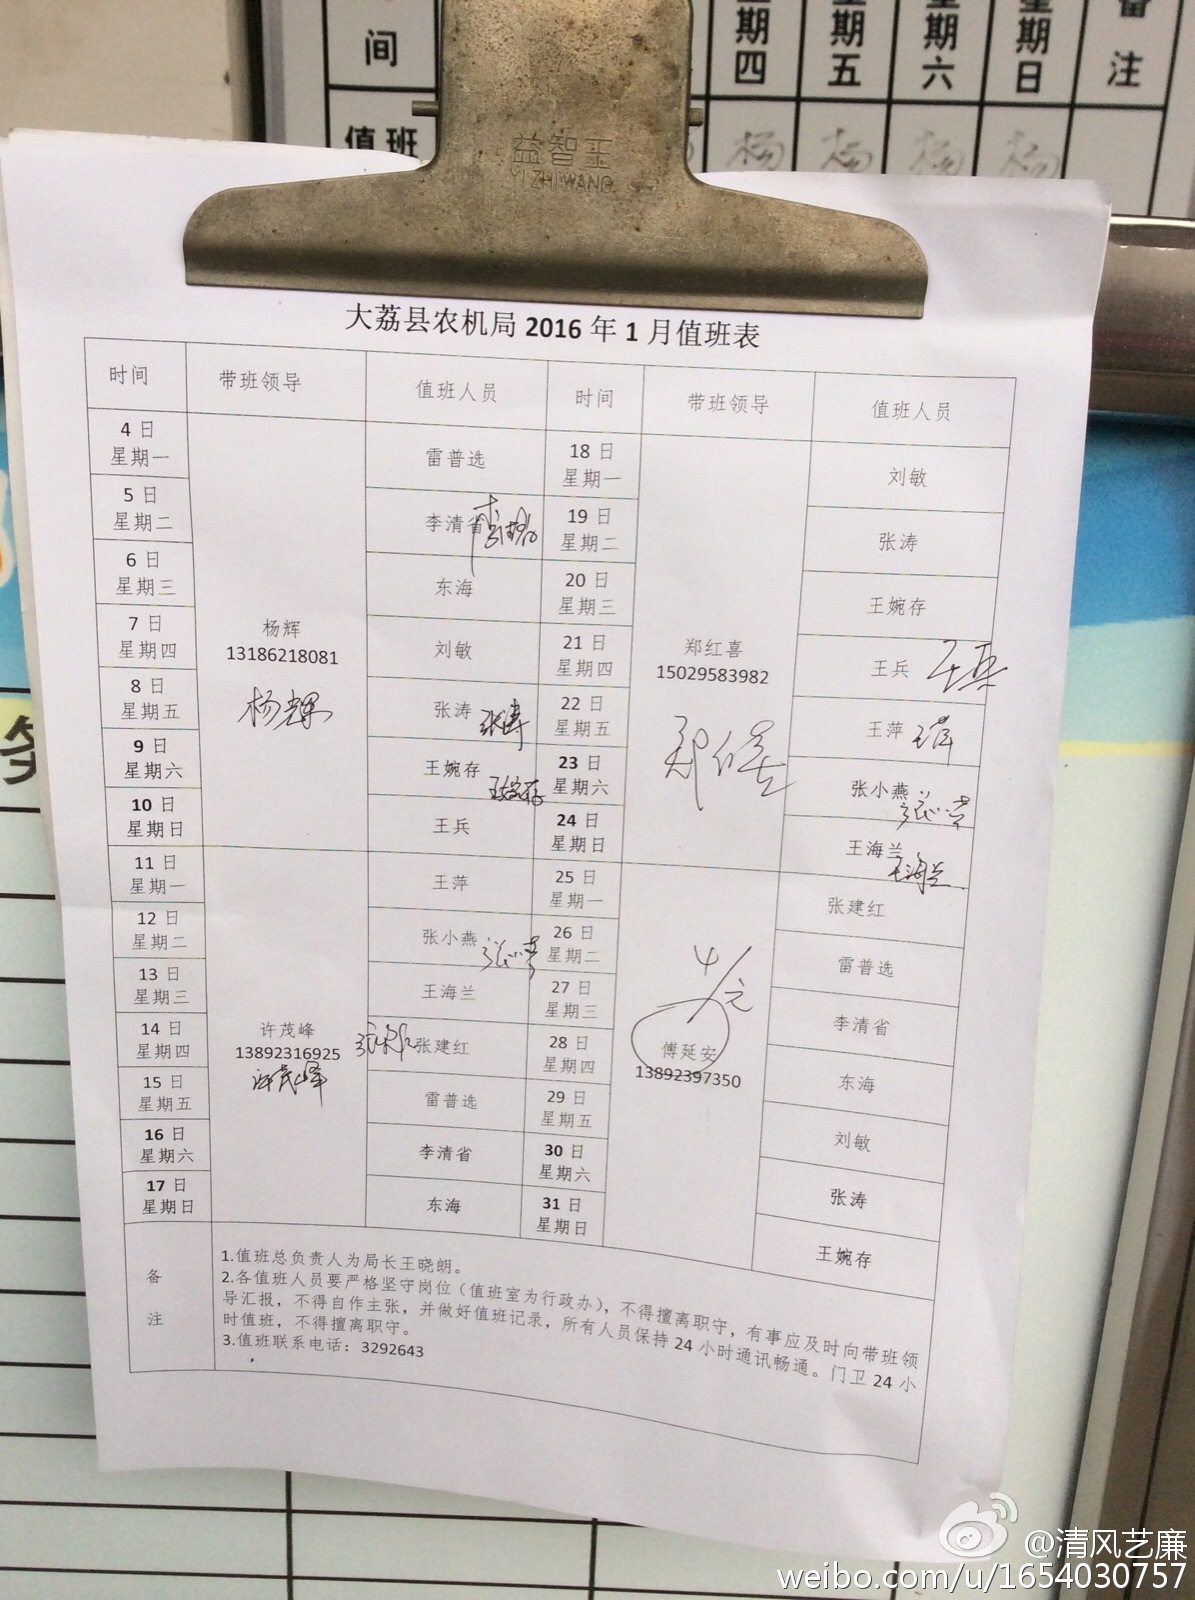 间
星期四
星期五
星期六
星期日
备注
值班
杨
杨
杨
益智王
YI ZHI WANG
大荔县农机局 2016 年 1 月值班表
时间 带班领导 值班人员 时间 带班领导 值班人员
4 日 星期一 雷普选 18 日 星期一 刘敏
5 日 星期二 李清省 19 日 星期二 张涛
6 日 星期三 东海 20 日 星期三 王婉存
7 日 星期四 刘敏 21 日 星期四 王兵 王兵
杨辉 郑红喜
13186218081 15029583982
杨辉
8 日 星期五 张涛 张涛 22 日 星期五 王萍 王萍
9 日 星期六 王婉存 王婉存 23 日 星期六 张小燕
10 日 星期日 王兵 24 日 星期日 王海兰 王海兰
11 日 星期一 王萍 25 日 星期一 张建红
12 日 星期二 张小燕 26 日 星期二 雷普选
13 日 星期三 王海兰 27 日 星期三 李清省
14 日 星期四 张建红 28 日 星期四 东海
许茂峰 傅延安
13892316925 13892397350
许茂峰
15 日 星期五 雷普选 29 日 星期五 刘敏
16 日 星期六 李清省 30 日 星期六 张涛
17 日 星期日 东海 31 日 星期日 王婉存
备注
1.值班总负责人为局长王晓朗。
2.各值班人员要严格坚守岗位（值班室为行政办），不得擅离职守，有事应及时向带班领
导汇报，不得自作主张，并做好值班记录，所有人员保持 24 小时通讯畅通。门卫 24 小
时值班，不得擅离职守。
3.值班联系电话：3292643
@清风艺廉
weibo.com/u/1654030757